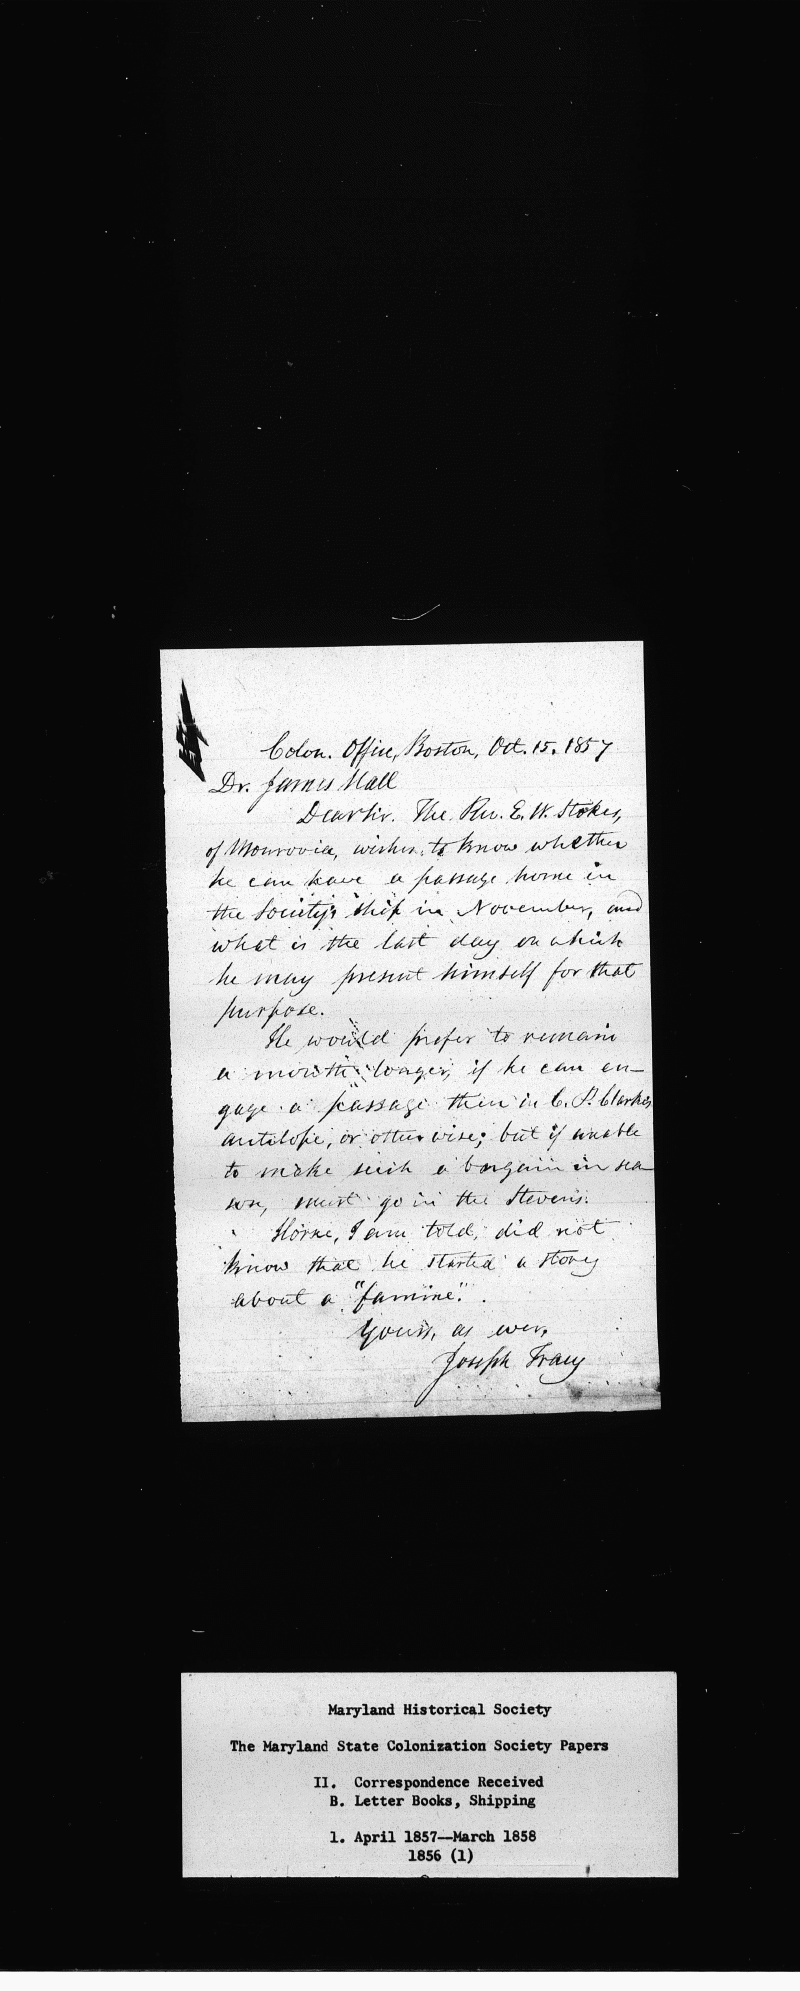 Colon. Office, Boston, Oct. 15, 1857
Dr. James Hall
Dear Sir. The Rev. E. W. Stokes,
of Monrovia, wishes to know whether
he can have a passage home in
the Society's ship in November, and
what is the last day on which
he may present himself for that
purpose.
He would prefer to remain
a month longer, if he can en-
gage a passage then in C. P. Clarke's
antelope, or otherwise; but if unable
to make such a bargain in sea-
son, must go in the Stevens.
Horne, I am told, did not
know that he started a story
about a "famine".
Yours, as ever,
Joseph Tracy
Maryland Historical Society
The Maryland State Colonization Society Papers
II. Correspondence Received
B. Letter Books, Shipping
1. April 1857--March 1858
1856 (1)